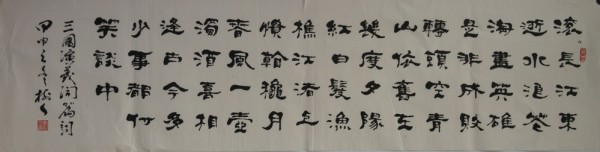 滚〻長江東
逝水浪花
淘盡英雄
是非成敗
轉頭空青
山依舊在
幾度夕陽
紅白髮漁
樵江渚上
慣看秋月
春風一壺
濁酒喜相
逢古今多
少事都付
笑談中
三國演義開篇詞
甲申之冬